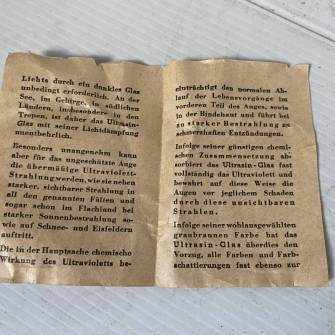 Lichts durch ein dunkles Glas
unbedingt erforderlich. An der
See, im Gebirge, in südlichen
Ländern, insbesondere in den
Tropen, ist daher das Ultrasin-
Glas mit seiner Lichtdämpfung
unentbehrlich.
Besonders unangenehm kann
aber für das ungeschützte Auge
die übermäßige Ultraviolett-
Strahlung werden, wie sie neben
starker, sichtbarer Strahlung in
all den genannten Fällen und
sogar schon im Flachland bei
starker Sonnenbestrahlung so-
wie auf Schnee- und Eisfeldern
auftritt.
Die in der Hauptsache chemische
Wirkung des Ultravioletts be-
einträchtigt den normalen Ab-
lauf der Lebensvorgänge im
vorderen Teil des Auges, sowie
in der Bindehaut und führt bei
zu starker Bestrahlung zu
schmerzhaften Entzündungen.
Infolge seiner günstigen chemi-
schen Zusammensetzung ab-
sorbiert das Ultrasin-Glas fast
vollständig das Ultraviolett und
bewahrt auf diese Weise die
Augen vor jeglichem Schaden
durch diese unsichtbaren
Strahlen.
Infolge seiner wohlausgewählten
graubraunen Farbe hat das
Ultrasin-Glas überdies den
Vorzug, alle Farben und Farb-
schattierungen fast ebenso zur